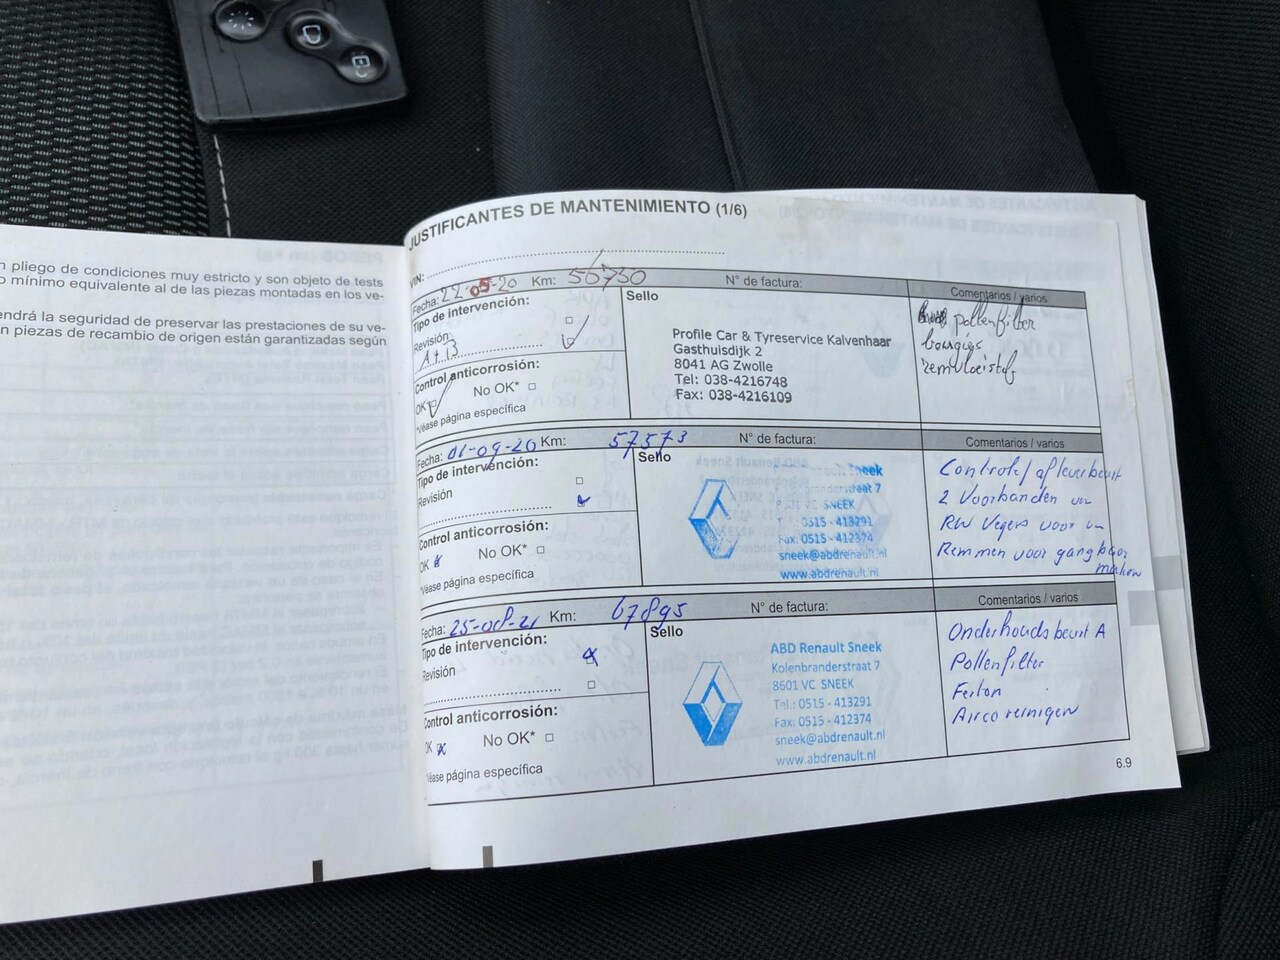 n pliego de condiciones muy estricto y son objeto de tests
o mínimo equivalente al de las piezas montadas en los ve-
endrá la seguridad de preservar las prestaciones de su ve-
n piezas de recambio de origen están garantizadas según
JUSTIFICANTES DE MANTENIMIENTO (1/6)
VIN:
Fecha: 22-05-20 Km: 50730 N° de factura:
Comentarios / varios
Tipo de intervención:
Revisión
A+B
Control anticorrosión:
OK No OK*
*Véase página específica
Sello
Profile Car & Tyreservice Kalvenhaar
Gasthuisdijk 2
8041 AG Zwolle
Tel: 038-4216748
Fax: 038-4216109
pollenfilter
bougies
remvloeistof
Fecha: 01-09-20 Km: 57573 N° de factura:
Comentarios / varios
Tipo de intervención:
Revisión
Control anticorrosión:
OK No OK*
*Véase página específica
Sello
Sneek
SNEEK
0515 - 413291
Fax: 0515 - 412374
sneek@abdrenault.nl
www.abdrenault.nl
Controle/afleverbeurt
2 Voorbanden
RW Vegers voor
Remmen voor gangbaar
maken
Fecha: 25-08-21 Km: 67895 N° de factura:
Comentarios / varios
Tipo de intervención:
Revisión
Control anticorrosión:
OK No OK*
Véase página específica
Sello
ABD Renault Sneek
Kolenbranderstraat 7
8601 VC SNEEK
Tel.: 0515 - 413291
Fax: 0515 - 412374
sneek@abdrenault.nl
www.abdrenault.nl
Onderhoudsbeurt A
Pollenfilter
Airco reinigen
6.9